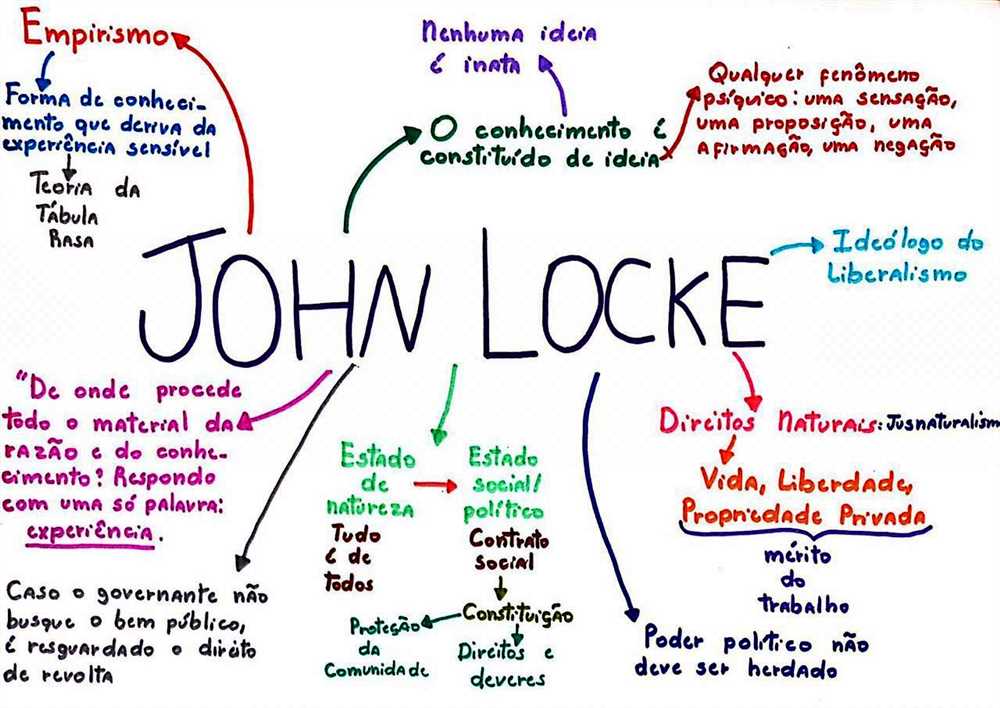 Empirismo
Forma de conheci-
mento que deriva da
experiência sensível
Teoria da
Tábula
Rasa
Nenhuma ideia
é inata
O conhecimento é
constituído de ideia
Qualquer fenômeno
psíquico: uma sensação,
uma proposição, uma
afirmação, uma negação
JOHN LOCKE
Ideólogo do
Liberalismo
"De onde procede
todo o material da
razão e do conhe-
cimento? Respondo
com uma só palavra:
experiência.
Caso o governante não
busque o bem público,
é resguardado o direito
de revolta
Estado
de
natureza
Tudo
é de
todos
Estado
social/
político
Contrato
social
Constituição
Proteção
da
Comunidade
Direitos e
deveres
Poder político não
deve ser herdado
Direitos Naturais: Jusnaturalism
Vida, Liberdade,
Propriedade Privada
mérito
do
trabalho